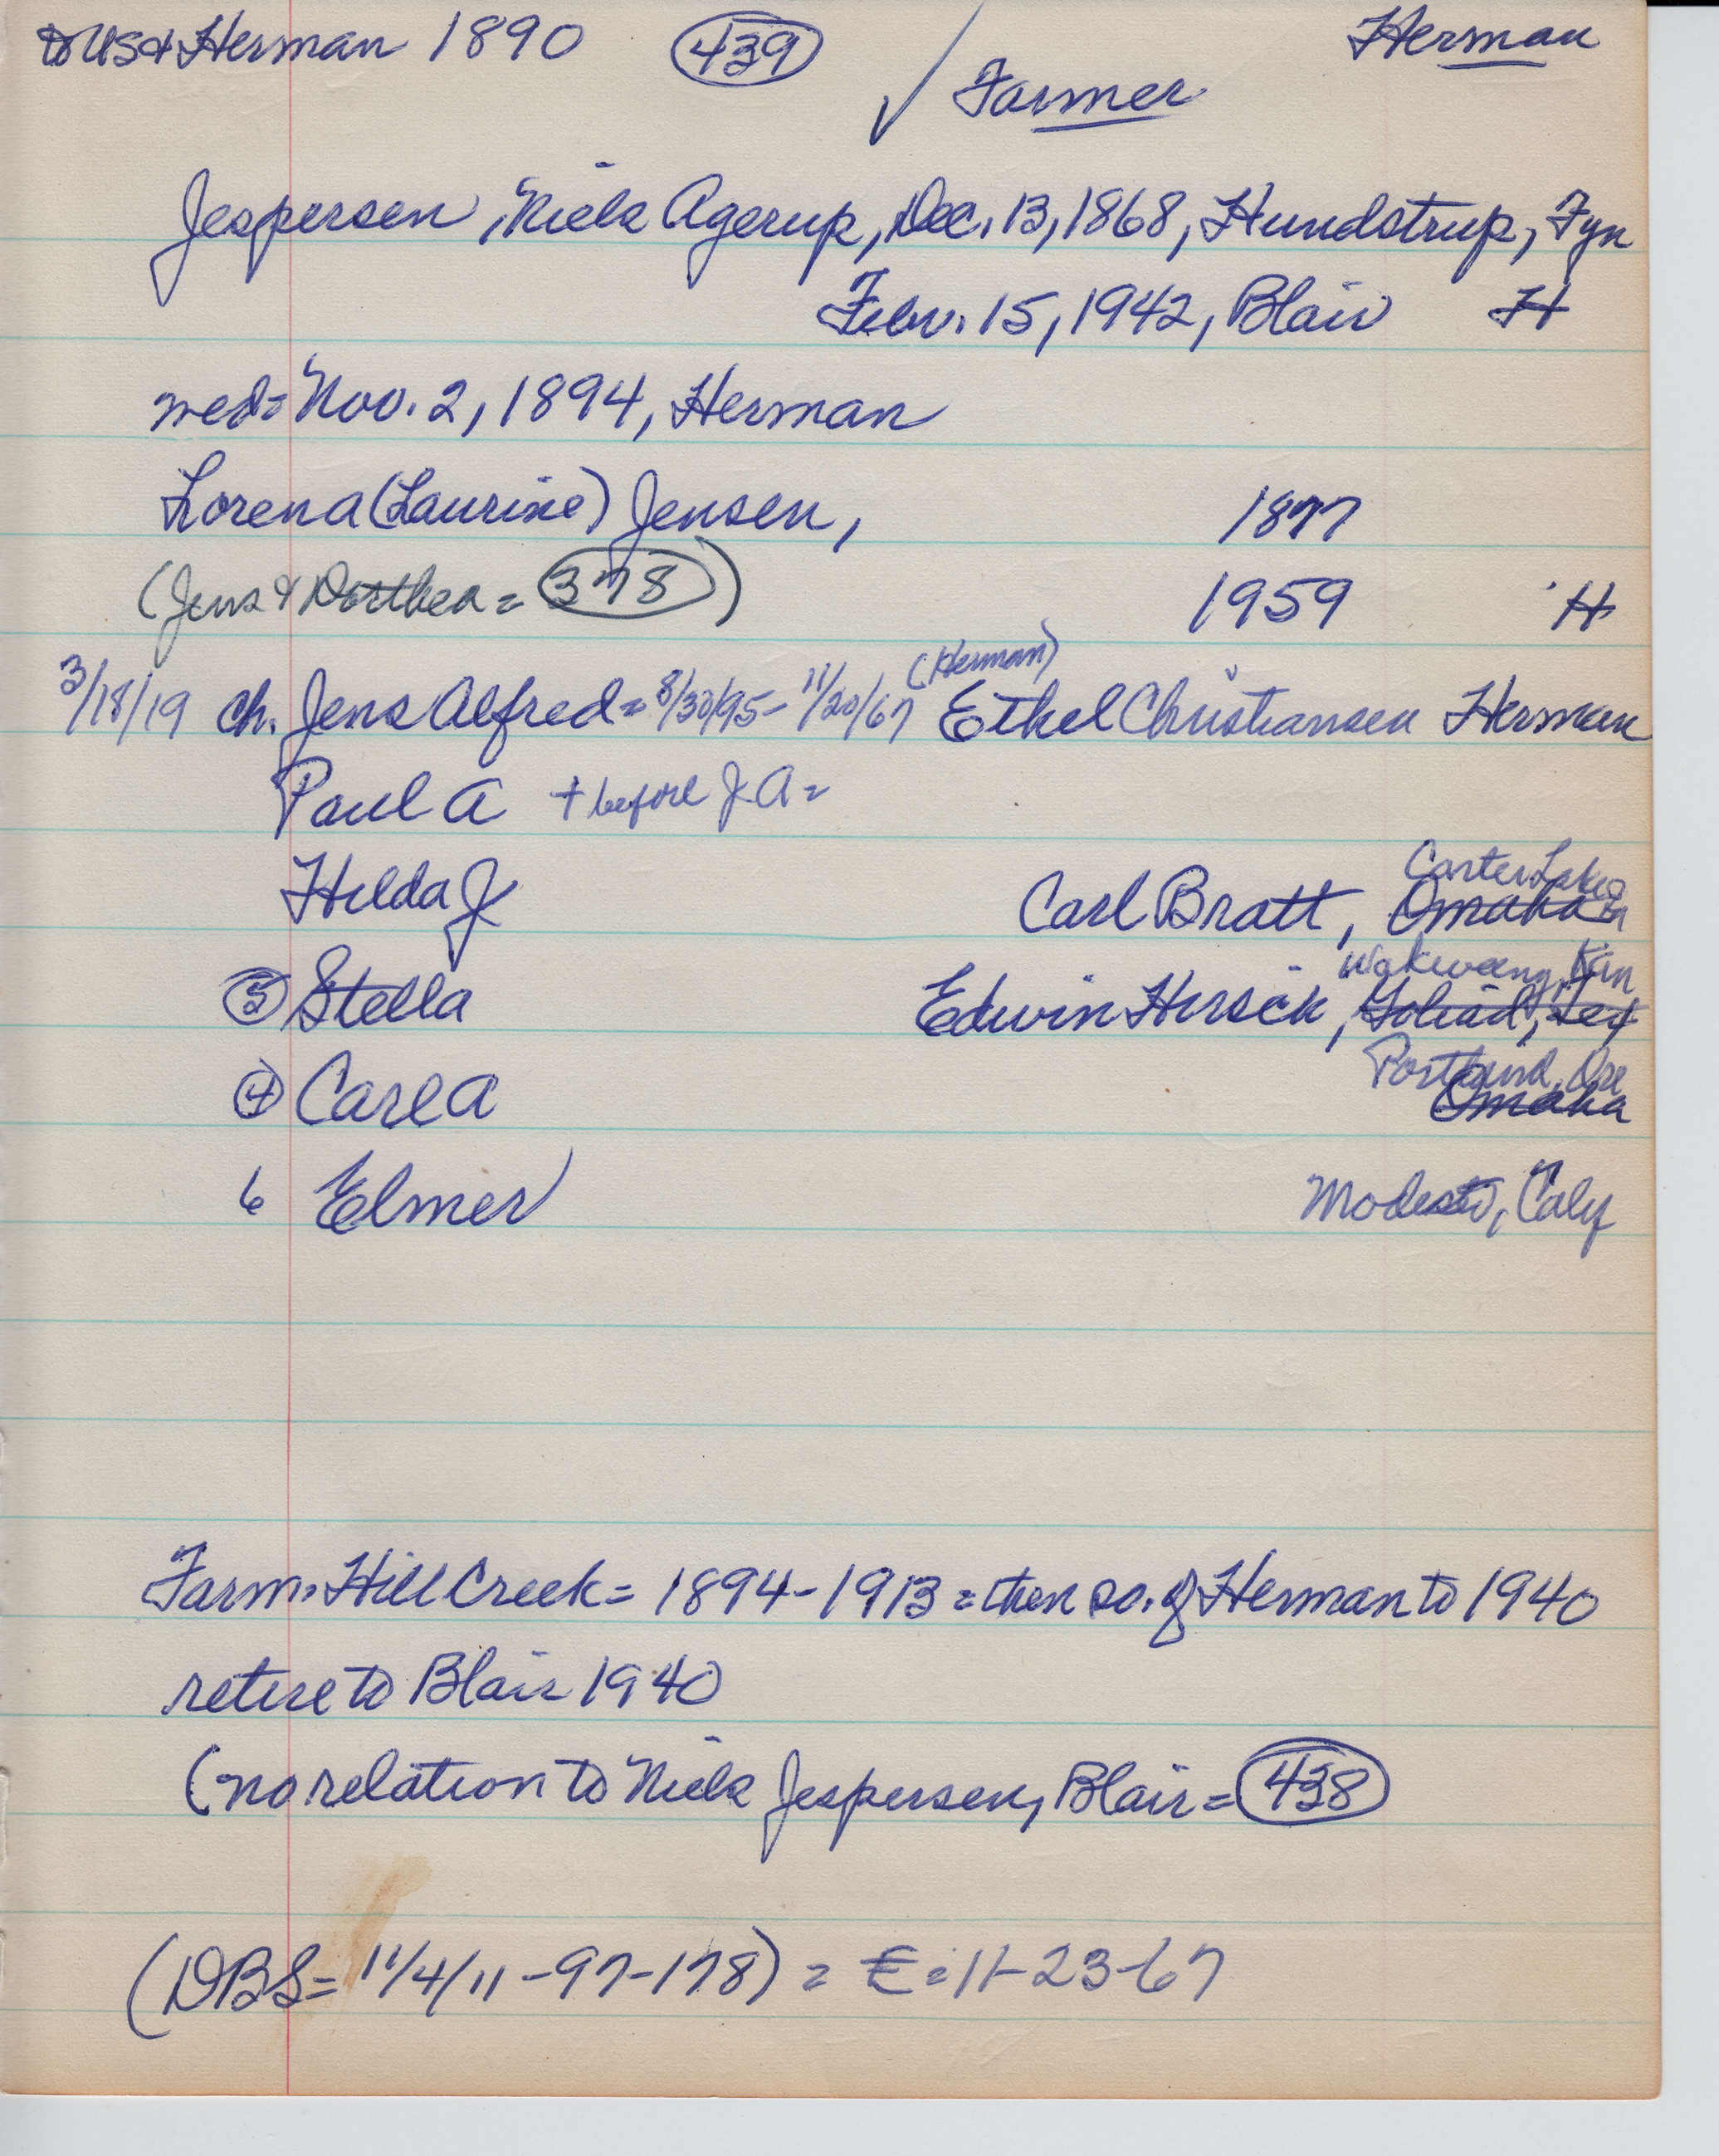 to US & Herman 1890 439 ✓ Farmer Herman
Jespersen, Niels Agerup, Dec. 13, 1868, Hundstrup, Fyn
Febr. 15, 1942, Blair H
wed= Nov. 2, 1894, Herman
Lorena (Laurine) Jensen, 1877
(Jens & Dorthea = 378) 1959 H
(Herman)
3/18/19 ch. Jens Alfred= 8/30/95- 11/20/67 Ethel Christiansen Herman
Paul A + before J A=
Carter Lake
Hilda J Carl Bratt, Omaha
Kan
5 Stella Edwin Hirsch, Goliad, Tex
Portland, Ore
4 Carl A Omaha
6 Elmer Modesto, Calif
Farm. Hill Creek= 1894-1913= then so. of Herman to 1940
retire to Blair 1940
(no relation to Niels Jespersen, Blair= 438
(DBS= 11/4/11-97-178) = E=11-23-67